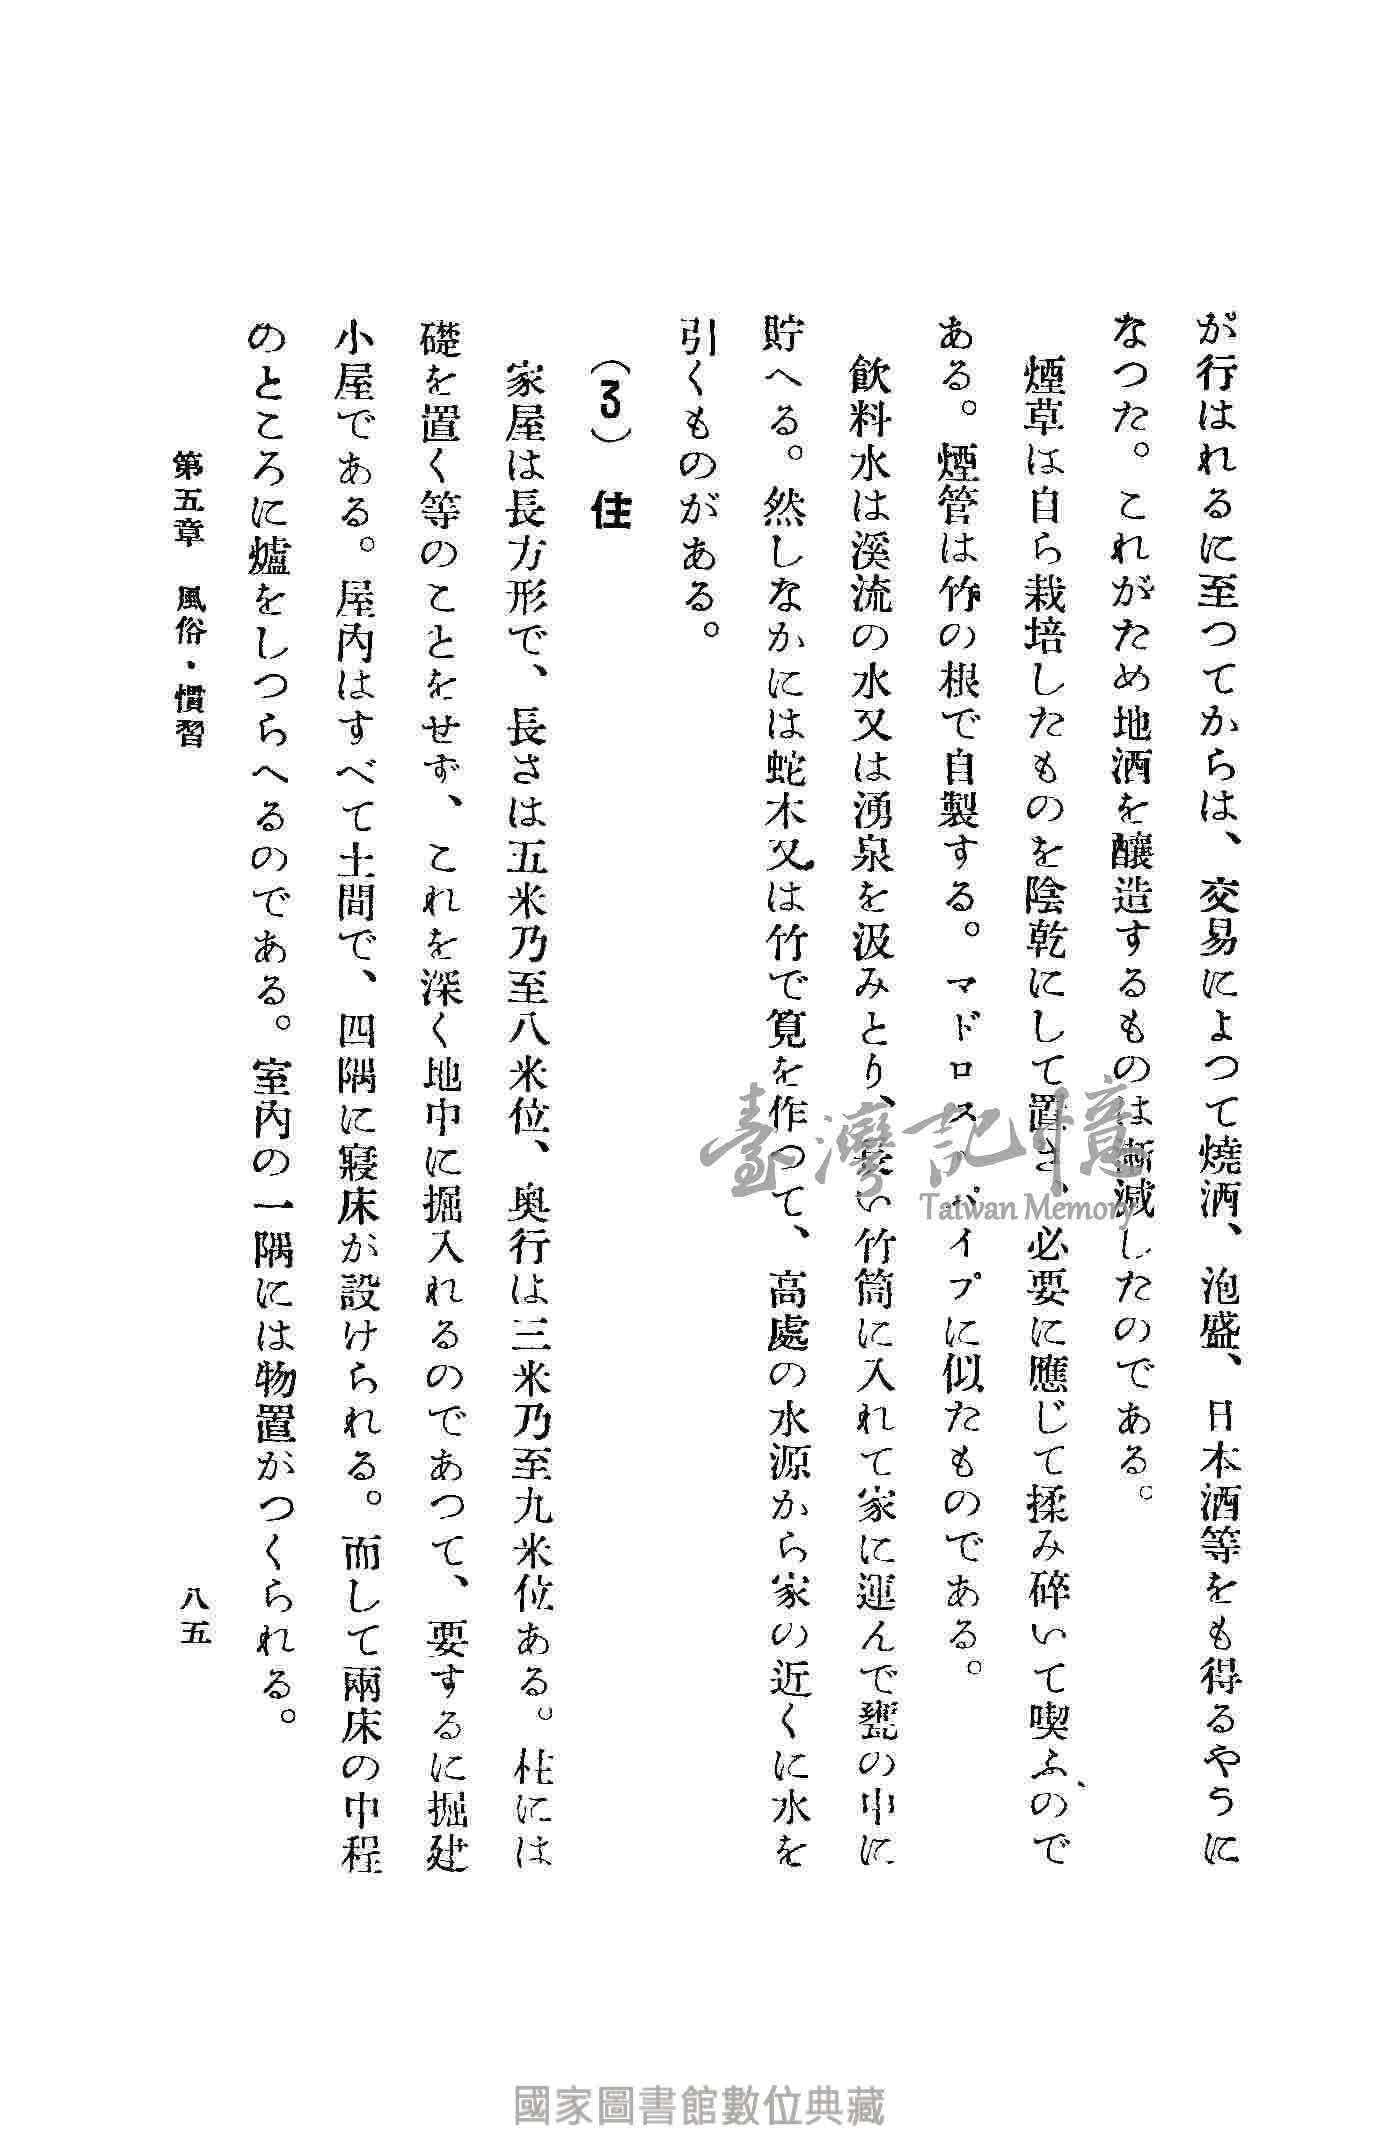 が行はれるに至つてからは、交易によつて燒酒、泡盛、日本酒等をも得るやうに
なつた。これがため地酒を釀造するものは漸減したのである。
煙草は自ら栽培したものを陰乾にして置き、必要に應じて揉み碎いて喫ふ、ので
ある。煙管は竹の根で自製する。マドロス・パイプに似たものである。
飮料水は溪流の水又は湧泉を汲みとり、長い竹筒に入れて家に運んで甕の中に
貯へる。然しなかには蛇木又は竹で筧を作つて、高處の水源から家の近くに水を
引くものがある。
(3) 住
家屋は長方形で、長さは五米乃至八米位、奥行は三米乃至九米位ある。柱には
礎を置く等のことをせず、これを深く地中に掘入れるのであつて、要するに掘建
小屋である。屋內はすべて土間で、四隅に寢床が設けられる。而して兩床の中程
のところに爐をしつらへるのである。室內の一隅には物置がつくられる。
第五章 風俗・慣習
八五
臺灣記憶
Taiwan Memory
國家圖書館數位典藏